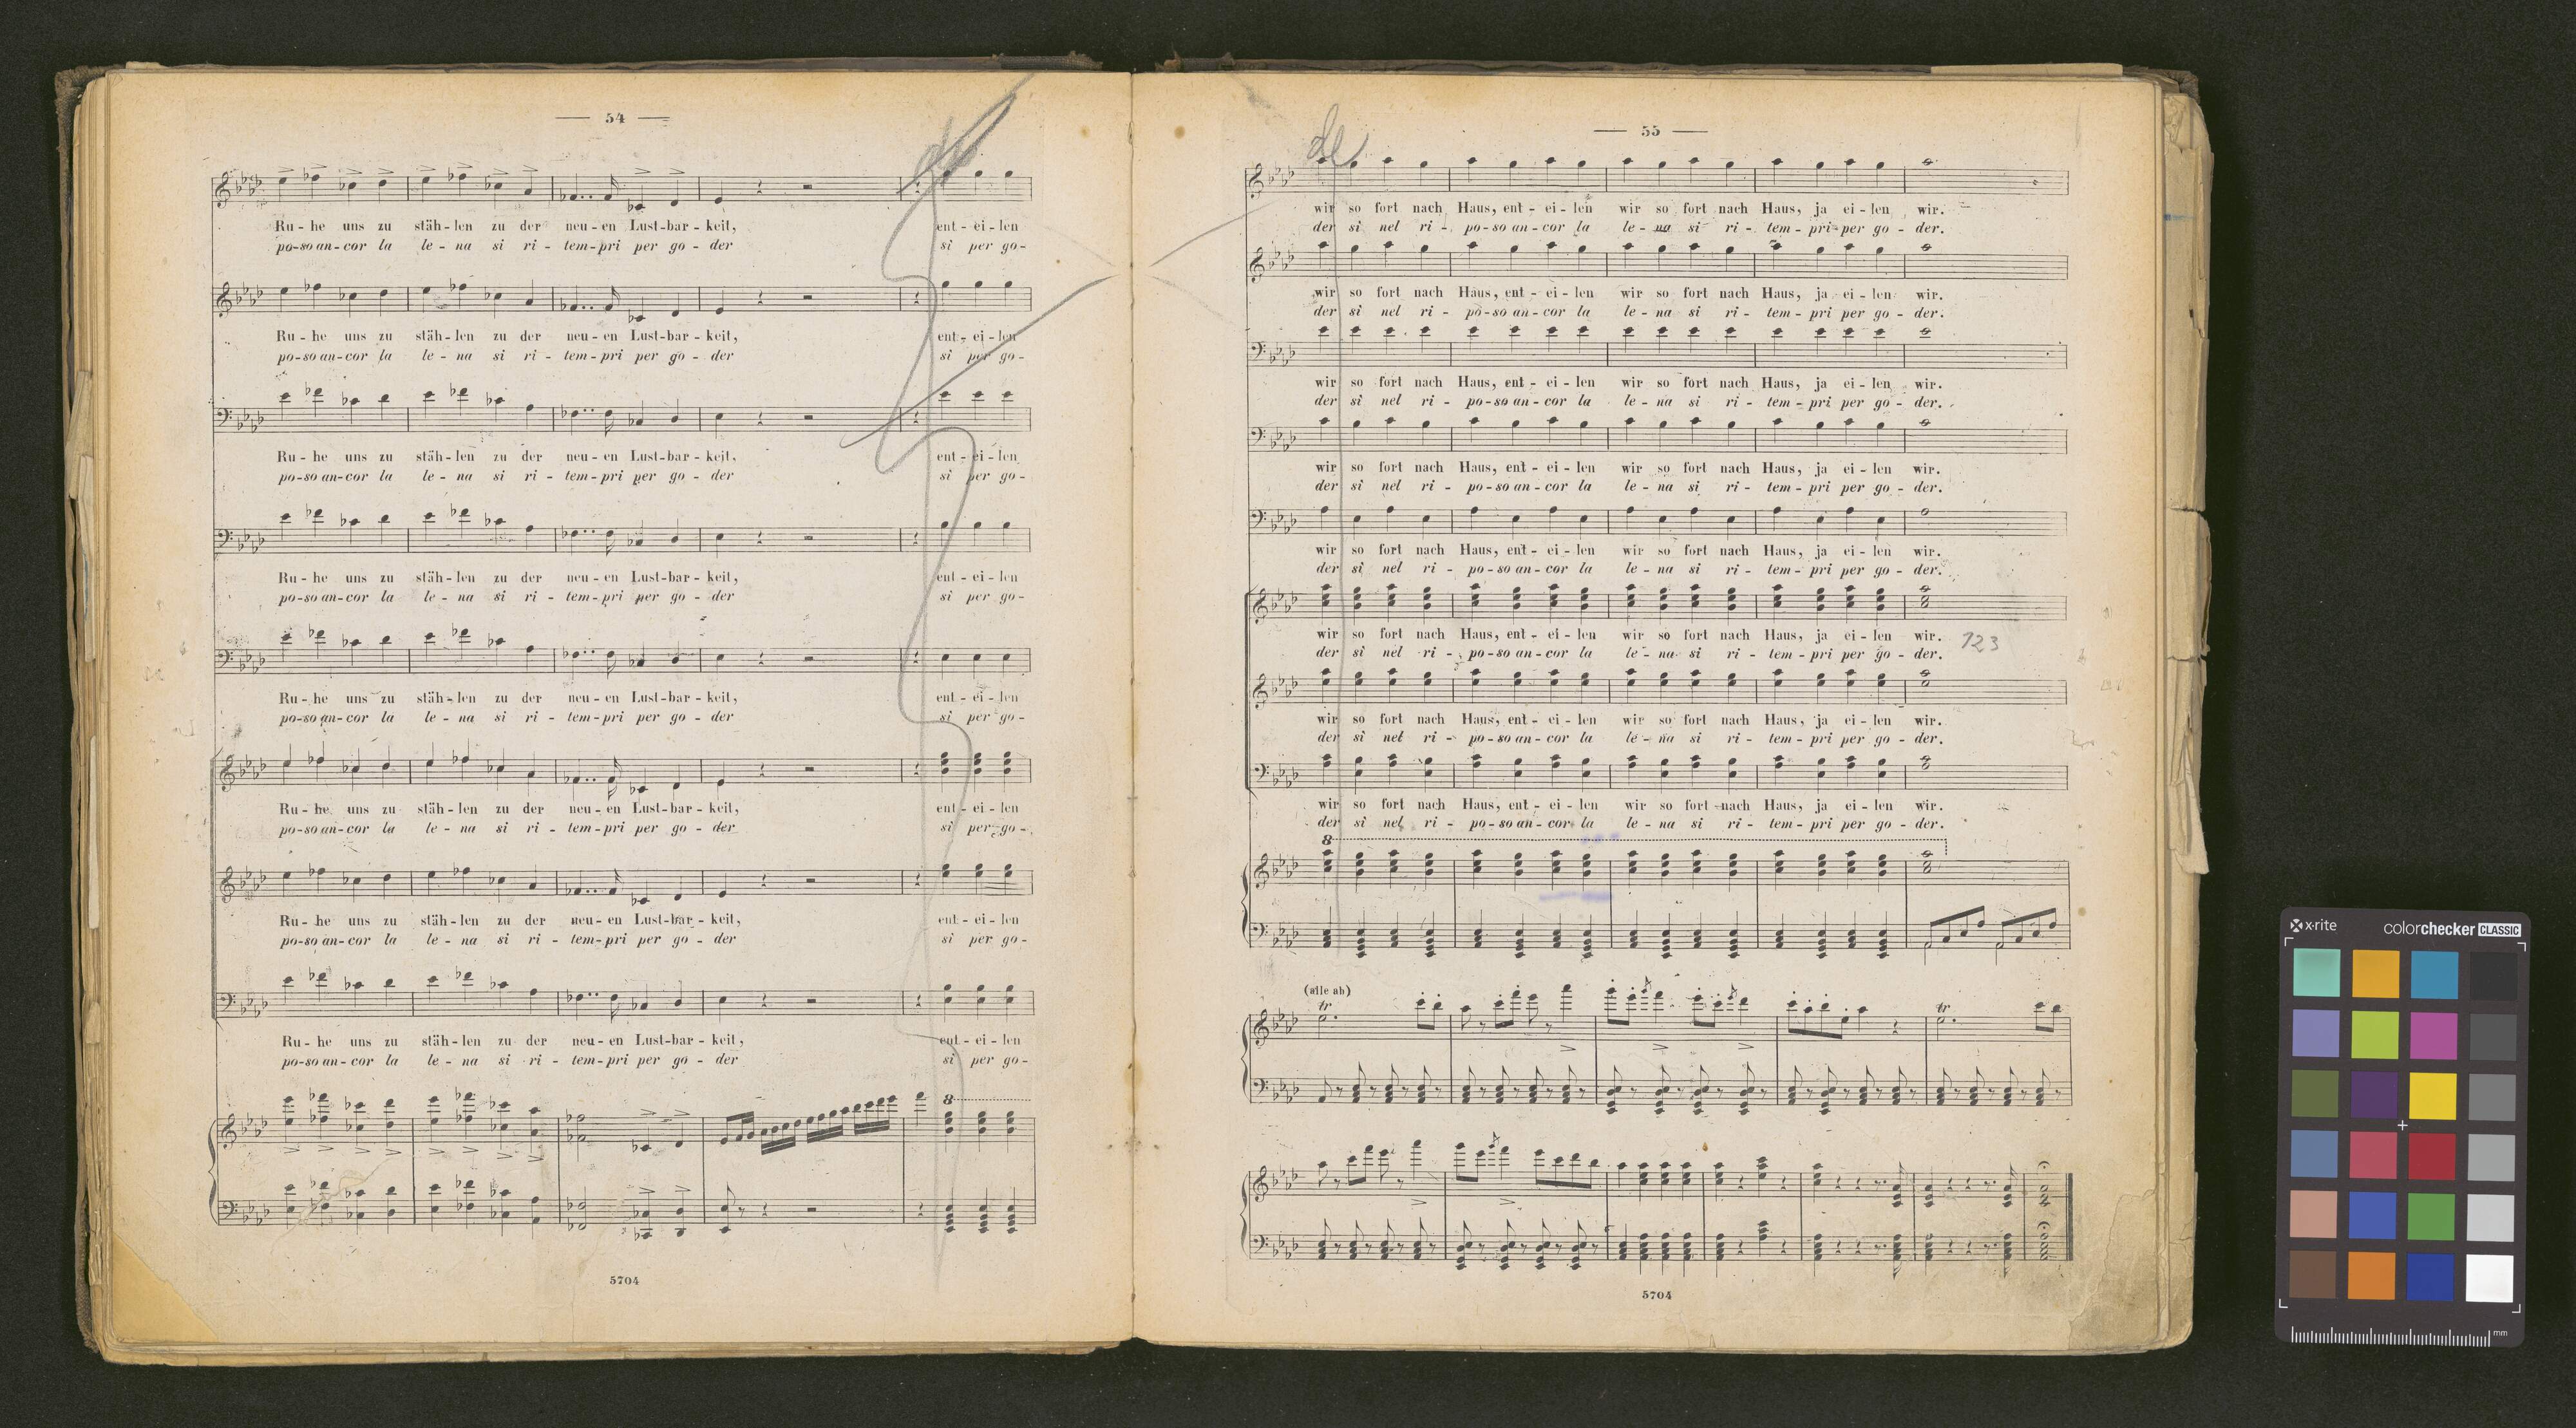 54
Ru - he uns zu stäh - len zu der neu - en Lust - bar - keit, ent - ei - len
po - so an - cor la le - na si ri - tem - pri per go - der si per go -
Ru - he uns zu stäh - len zu der neu - en Lust - bar - keit, ent - ei - len
po - so an - cor la le - na si ri - tem - pri per go - der si per go -
Ru - he uns zu stäh - len zu der neu - en Lust - bar - keit, ent - ei - len
po - so an - cor la le - na si ri - tem - pri per go - der si per go -
Ru - he uns zu stäh - len zu der neu - en Lust - bar - keit, ent - ei - len
po - so an - cor la le - na si ri - tem - pri per go - der si per go -
Ru - he uns zu stäh - len zu der neu - en Lust - bar - keit, ent - ei - len
po - so an - cor la le - na si ri - tem - pri per go - der si per go -
Ru - he uns zu stäh - len zu der neu - en Lust - bar - keit, ent - ei - len
po - so an - cor la le - na si ri - tem - pri per go - der si per go -
Ru - he uns zu stäh - len zu der neu - en Lust - bar - keit, ent - ei - len
po - so an - cor la le - na si ri - tem - pri per go - der si per go -
Ru - he uns zu stäh - len zu der neu - en Lust - bar - keit, ent - ei - len
po - so an - cor la le - na si ri - tem - pri per go - der si per go -
8
5704
55
de
wir so fort nach Haus, ent - ei - len wir so fort nach Haus, ja ei - len wir.
der si nel ri - po - so an - cor la le - na si ri - tem - pri per go - der.
wir so fort nach Haus, ent - ei - len wir so fort nach Haus, ja ei - len wir.
der si nel ri - po - so an - cor la le - na si ri - tem - pri per go - der.
wir so fort nach Haus, ent - ei - len wir so fort nach Haus, ja ei - len wir.
der si nel ri - po - so an - cor la le - na si ri - tem - pri per go - der.
wir so fort nach Haus, ent - ei - len wir so fort nach Haus, ja ei - len wir.
der si nel ri - po - so an - cor la le - na si ri - tem - pri per go - der.
wir so fort nach Haus, ent - ei - len wir so fort nach Haus, ja ei - len wir.
der si nel ri - po - so an - cor la le - na si ri - tem - pri per go - der.
wir so fort nach Haus, ent - ei - len wir so fort nach Haus, ja ei - len wir. 123
der si nel ri - po - so an - cor la le - na si ri - tem - pri per go - der.
wir so fort nach Haus, ent - ei - len wir so fort nach Haus, ja ei - len wir.
der si nel ri - po - so an - cor la le - na si ri - tem - pri per go - der.
wir so fort nach Haus, ent - ei - len wir so fort nach Haus, ja ei - len wir.
der si nel ri - po - so an - cor la le - na si ri - tem - pri per go - der.
8
(alle ab)
tr tr
5704
x·rite colorchecker CLASSIC
mm